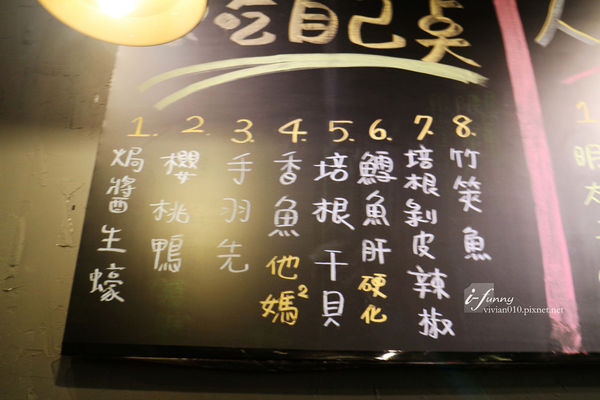 吃自己点
1. 焗醬生蠔
2. 櫻桃鴨
3. 手羽先
4. 香魚他媽²
5. 培根干貝
6. 鱈魚肝硬化
7. 培根剝皮辣椒
8. 竹筴魚
1
明太
i-funny
vivian010.pixnet.net